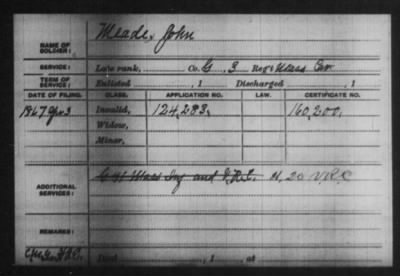 Meade, John
NAME OF SOLDIER:
SERVICE: Late rank, Co. G, 3 Reg't Mass Cav
TERM OF SERVICE: Enlisted , 1 Discharged , 1
DATE OF FILING. CLASS. APPLICATION NO. LAW. CERTIFICATE NO.
1867 Apr 3 Invalid, 124,283. 160,200.
Widow,
Minor,
ADDITIONAL SERVICES: G 41 Mass Inf and V.R.C. H. 20 V.R.C
REMARKS:
Died , 1 , at